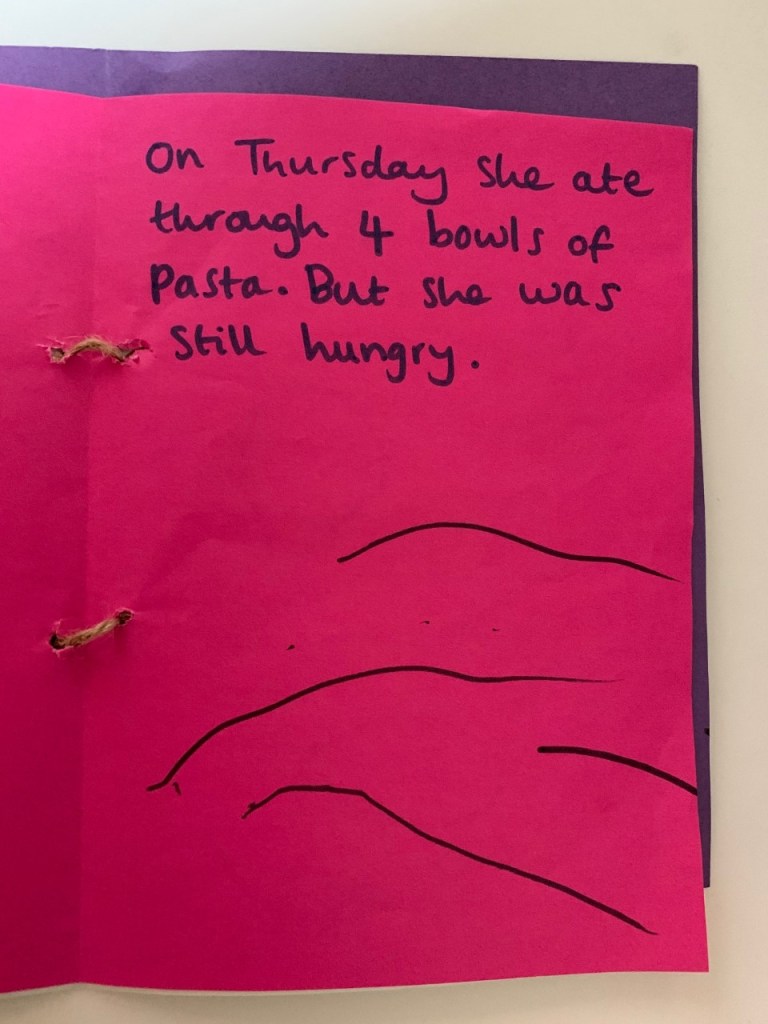 On Thursday she ate
through 4 bowls of
Pasta. But she was
still hungry.